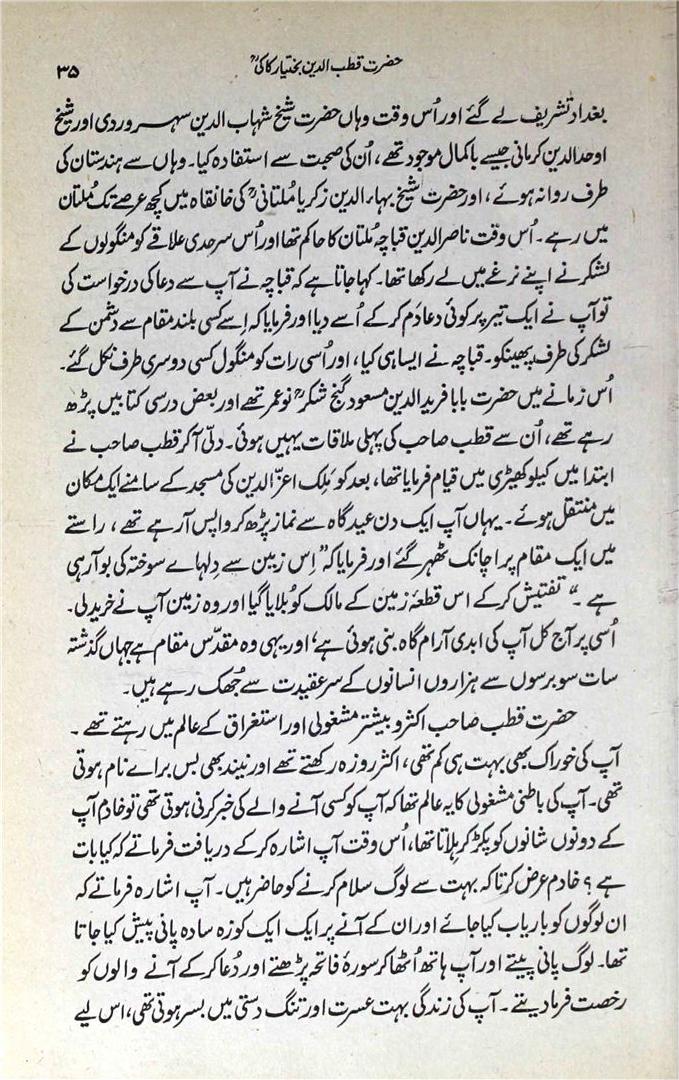 حضرت قطب الدین بختیار کاکیؒ
۳۵
بغداد تشریف لے گئے اور اُس وقت وہاں حضرت شیخ شہاب الدین سہروردی اور شیخ
اوحد الدین کرمانی جیسے باکمال موجود تھے، اُن کی صحبت سے استفادہ کیا۔ وہاں سے ہندستان کی
طرف روانہ ہوئے، اور حضرت شیخ بہاء الدین زکریا مُلتانیؒ کی خانقاہ میں کچھ عرصے تک مُلتان
میں رہے۔ اُس وقت ناصر الدین قباچہ مُلتان کا حاکم تھا اور اُس سرحدی علاقے کو منگولوں کے
لشکر نے اپنے نرغے میں لے رکھا تھا۔ کہا جاتا ہے کہ قباچہ نے آپ سے دعا کی درخواست کی
تو آپ نے ایک تیر پر کوئی دعا دَم کر کے اُسے دیا اور فرمایا کہ اِسے کسی بلند مقام سے دشمن کے
لشکر کی طرف پھینکو۔ قباچہ نے ایسا ہی کیا، اور اُسی رات کو منگول کسی دوسری طرف نکل گئے۔
اُس زمانے میں حضرت بابا فرید الدین مسعود گنج شکرؒ نو عمر تھے اور بعض درسی کتابیں پڑھ
رہے تھے، اُن سے قطب صاحب کی پہلی ملاقات یہیں ہوئی۔ دلّی آ کر قطب صاحب نے
ابتدا میں کیلو کھیڑی میں قیام فرمایا تھا، بعد کو مَلِک اعزّ الدین کی مسجد کے سامنے ایک مکان
میں منتقل ہوئے۔ یہاں آپ ایک دن عید گاہ سے نماز پڑھ کر واپس آ رہے تھے، راستے
میں ایک مقام پر اچانک ٹھہر گئے اور فرمایا کہ ”اِس زمین سے دِلہاے سوختہ کی بو آ رہی
ہے۔“ تفتیش کر کے اس قطعۂ زمین کے مالک کو بُلایا گیا اور وہ زمین آپ نے خرید لی۔
اُسی پر آج کل آپ کی ابدی آرام گاہ بنی ہوئی ہے، اور یہی وہ مقدّس مقام ہے جہاں گذشتہ
سات سو برسوں سے ہزاروں انسانوں کے سر عقیدت سے جُھک رہے ہیں۔
حضرت قطب صاحب اکثر و بیشتر مشغولی اور استغراق کے عالم میں رہتے تھے۔
آپ کی خوراک بھی بہت ہی کم تھی، اکثر روزہ رکھتے تھے اور نیند بھی بس براے نام ہوتی
تھی۔ آپ کی باطنی مشغولی کا یہ عالم تھا کہ آپ کو کسی آنے والے کی خبر کرنی ہوتی تھی تو خادم آپ
کے دونوں شانوں کو پکڑ کر ہِلاتا تھا، اُس وقت آپ اشارہ کر کے دریافت فرماتے کہ کیا بات
ہے؟ خادم عرض کرتا کہ بہت سے لوگ سلام کرنے کو حاضر ہیں۔ آپ اشارہ فرماتے کہ
ان لوگوں کو باریاب کیا جائے اور ان کے آنے پر ایک ایک کوزہ سادہ پانی پیش کیا جاتا
تھا۔ لوگ پانی پیتے اور آپ ہاتھ اُٹھا کر سورۂ فاتحہ پڑھتے اور دُعا کر کے آنے والوں کو
رخصت فرما دیتے۔ آپ کی زندگی بہت عسرت اور تنگ دستی میں بسر ہوتی تھی، اس لیے